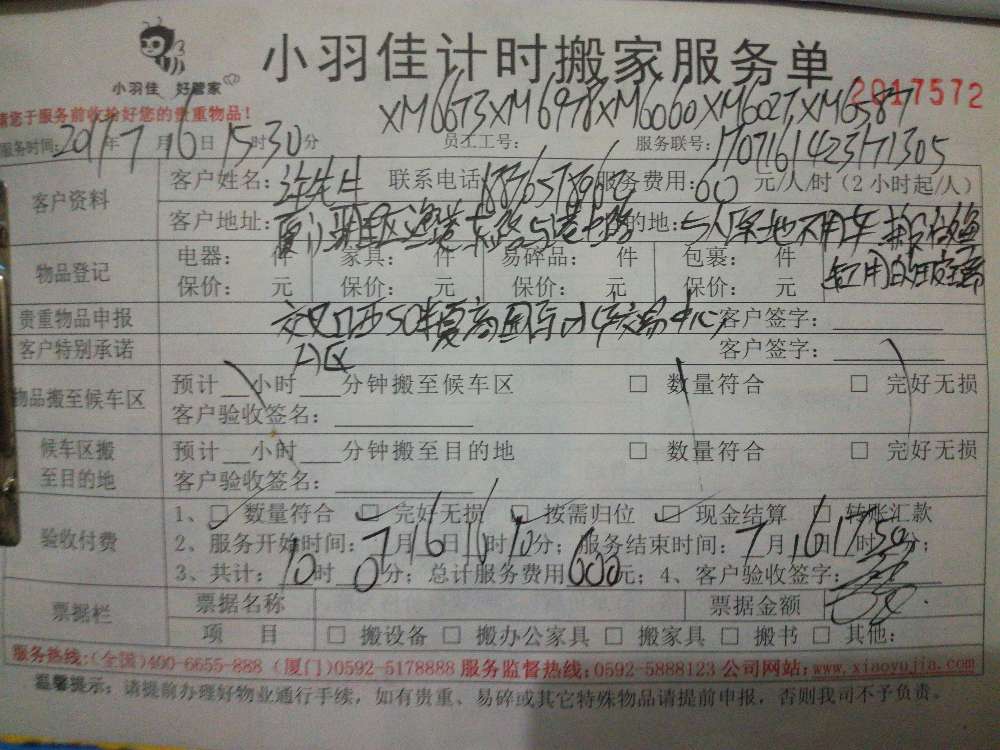 小羽佳 好管家
小羽佳计时搬家服务单
2017572
请您于服务前收给好您的贵重物品！
XM6673 XM6978 XM6060 XM6027 XM6587
服务时间：2016年7月16日15时30分 员工工号： 服务联号：1707161423171305
客户资料 客户姓名：许先生 联系电话 服务费用：60元/人/时（2小时起/人）
客户地址： 目的地：5人原地不用车
物品登记 电器： 件 家具： 件 易碎品： 件 包裹： 件
保价： 元 保价： 元 保价： 元 保价： 元
贵重物品申报 交叉口西50米夏商国际水产交易中心 客户签字：
客户特别承诺 A区 客户签字：
物品搬至候车区 预计__小时___分钟搬至候车区 □ 数量符合 □ 完好无损
客户验收签名：
候车区搬至目的地 预计__小时___分钟搬至目的地 □ 数量符合 □ 完好无损
客户验收签名：
验收付费 1、□ 数量符合 □ 完好无损 □ 按需归位 □ 现金结算 □ 转账汇款
2、服务开始时间：7月16日 分；服务结束时间：7月16日 分；
3、共计：10时0分；总计服务费用600元；4、客户验收签字：
票据栏 票据名称 票据金额
项 目 □ 搬设备 □ 搬办公家具 □ 搬家具 □ 搬书 □ 其他：
服务热线：（全国）400-6655-888（厦门）0592-5178888 服务监督热线：0592-5888123 公司网站：www.xiaoyujia.com
温馨提示：请提前办理好物业通行手续，如有贵重、易碎或其它特殊物品请提前申报，否则我司不予负责。